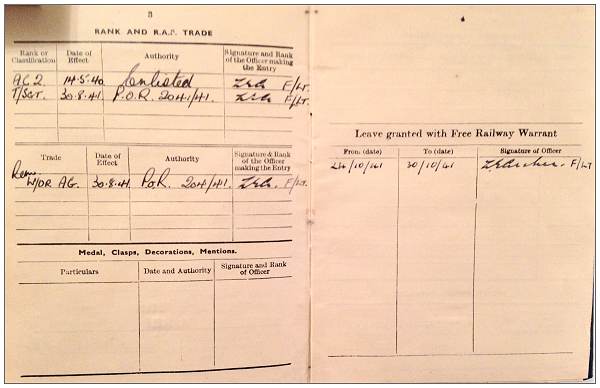 3
RANK AND R.A.F. TRADE
Rank or Classification Date of Effect Authority Signature and Rank of the Officer making the Entry
A.C.2. 14.5.40 Enlisted F/Lt.
T/SGT. 30.8.41. P.O.R. 204/41. F/Lt.
Trade Date of Effect Authority Signature & Rank of the Officer making the Entry
W/OP. AG. 30.8.41. P.O.R. 204/41. F/Lt.
Medal, Clasps, Decorations, Mentions.
Particulars Date and Authority Signature and Rank of Officer
Leave granted with Free Railway Warrant
From: (date) To (date) Signature of Officer
24/10/41 30/10/41 F/LT